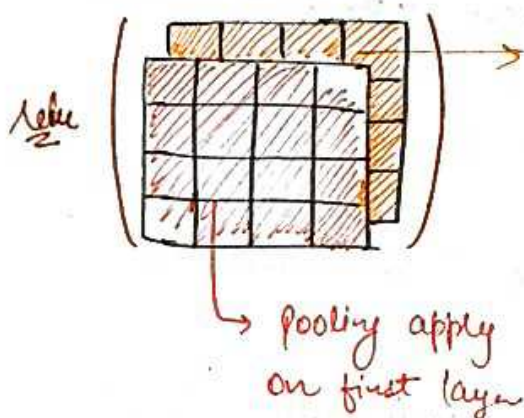 relu
pooling apply
on first layer